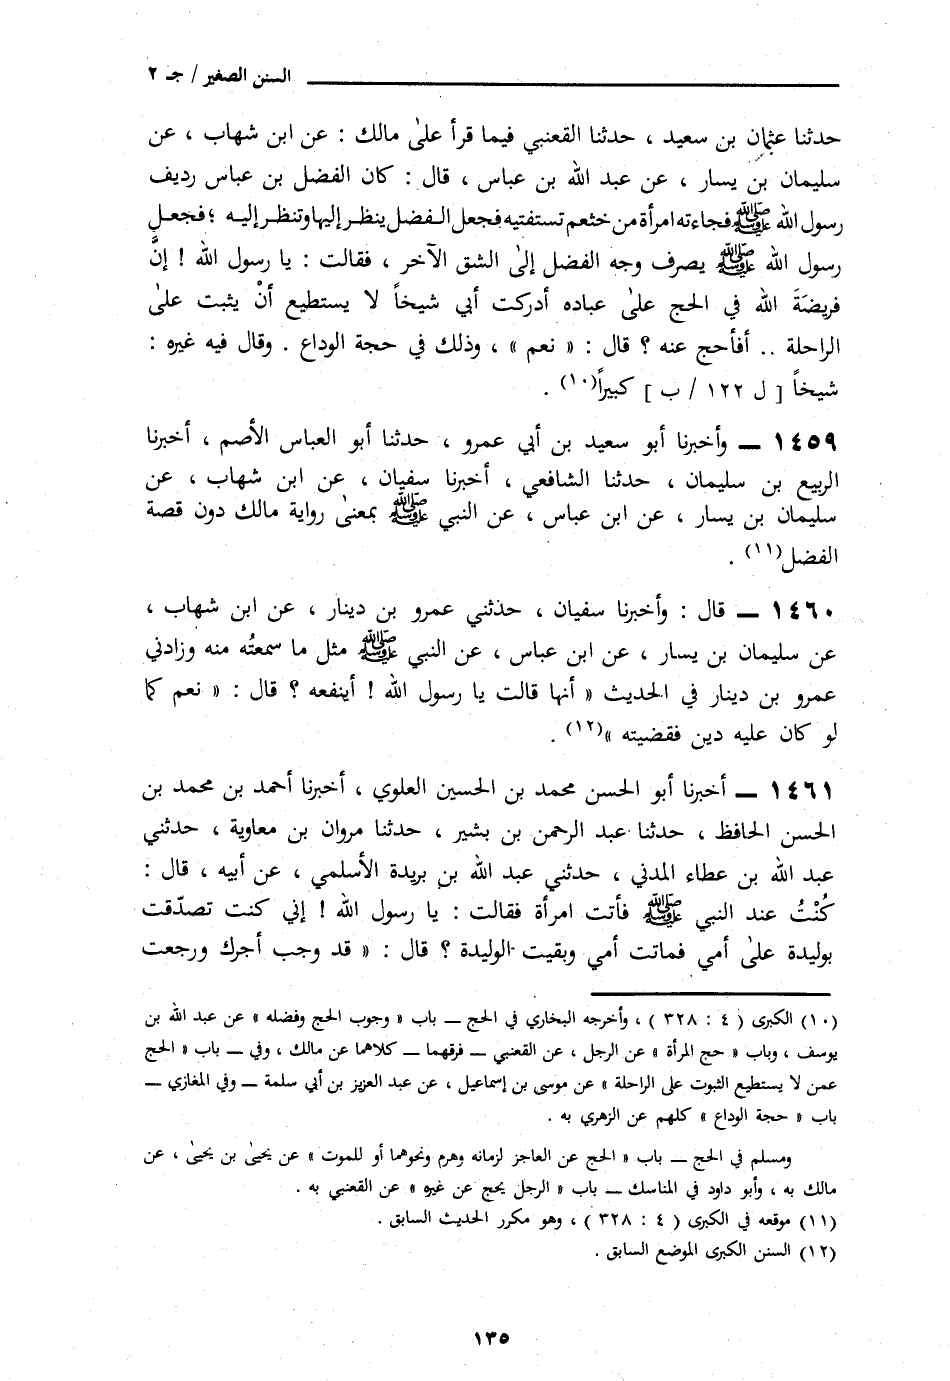 السنن الصغير / جـ ٢
حدثنا عثمان بن سعيد ، حدثنا القعنبي فيما قرأ علىٰ مالك : عن ابن شهاب ، عن
سليمان بن يسار ، عن عبد الله بن عباس ، قال : كان الفضل بن عباس رديف
رسول الله ﷺ فجاءته امرأة من خثعم تستفتيه فجعل الفضل ينظر إليها وتنظر إليه ؛ فجعل
رسول الله ﷺ يصرف وجه الفضل إلىٰ الشق الآخر ، فقالت : يا رسول الله ! إنَّ
فريضَةَ الله في الحج علىٰ عباده أدركت أبي شيخاً لا يستطيع أنْ يثبت علىٰ
الراحلة .. أفأحج عنه ؟ قال : « نعم » ، وذلك في حجة الوداع . وقال فيه غيره :
شيخاً [ ل ١٢٢ / ب ] كبيراً(١٠) .
١٤٥٩ ــ وأخبرنا أبو سعيد بن أبي عمرو ، حدثنا أبو العباس الأصم ، أخبرنا
الربيع بن سليمان ، حدثنا الشافعي ، أخبرنا سفيان ، عن ابن شهاب ، عن
سليمان بن يسار ، عن ابن عباس ، عن النبي ﷺ بمعنىٰ رواية مالك دون قصة
الفضل(١١) .
١٤٦٠ ــ قال : وأخبرنا سفيان ، حذثني عمرو بن دينار ، عن ابن شهاب ،
عن سليمان بن يسار ، عن ابن عباس ، عن النبي ﷺ مثل ما سمعتُه منه وزادني
عمرو بن دينار في الحديث « أنها قالت يا رسول الله ! أينفعه ؟ قال : « نعم كما
لو كان عليه دين فقضيته »(١٢) .
١٤٦١ ــ أخبرنا أبو الحسن محمد بن الحسين العلوي ، أخبرنا أحمد بن محمد بن
الحسن الحافظ ، حدثنا عبد الرحمن بن بشير ، حدثنا مروان بن معاوية ، حدثني
عبد الله بن عطاء المدني ، حدثني عبد الله بن بريدة الأسلمي ، عن أبيه ، قال :
كُنْتُ عند النبي ﷺ فأتت امرأة فقالت : يا رسول الله ! إني كنت تصدّقت
بوليدة علىٰ أمي فماتت أمي وبقيت الوليدة ؟ قال : « قد وجب أجرك ورجعت
(١٠) الكبرى ( ٤ : ٣٢٨ ) ، وأخرجه البخاري في الحج ــ باب « وجوب الحج وفضله » عن عبد الله بن
يوسف ، وباب « حج المرأة » عن الرجل ، عن القعنبي ــ فرقهما ــ كلاهما عن مالك ، وفي ــ باب « الحج
عمن لا يستطيع الثبوت على الراحلة » عن موسى بن إسماعيل ، عن عبد العزيز بن أبي سلمة ــ وفي المغازي ــ
باب « حجة الوداع » كلهم عن الزهري به .
ومسلم في الحج ــ باب « الحج عن العاجز لزمانه وهرم ونحوهما أو للموت » عن يحيىٰ بن يحيىٰ ، عن
مالك به ، وأبو داود في المناسك ــ باب « الرجل يحج عن غيره » عن القعنبي به .
(١١) موقعه في الكبرى ( ٤ : ٣٢٨ ) ، وهو مكرر الحديث السابق .
(١٢) السنن الكبرى الموضع السابق .
١٣٥